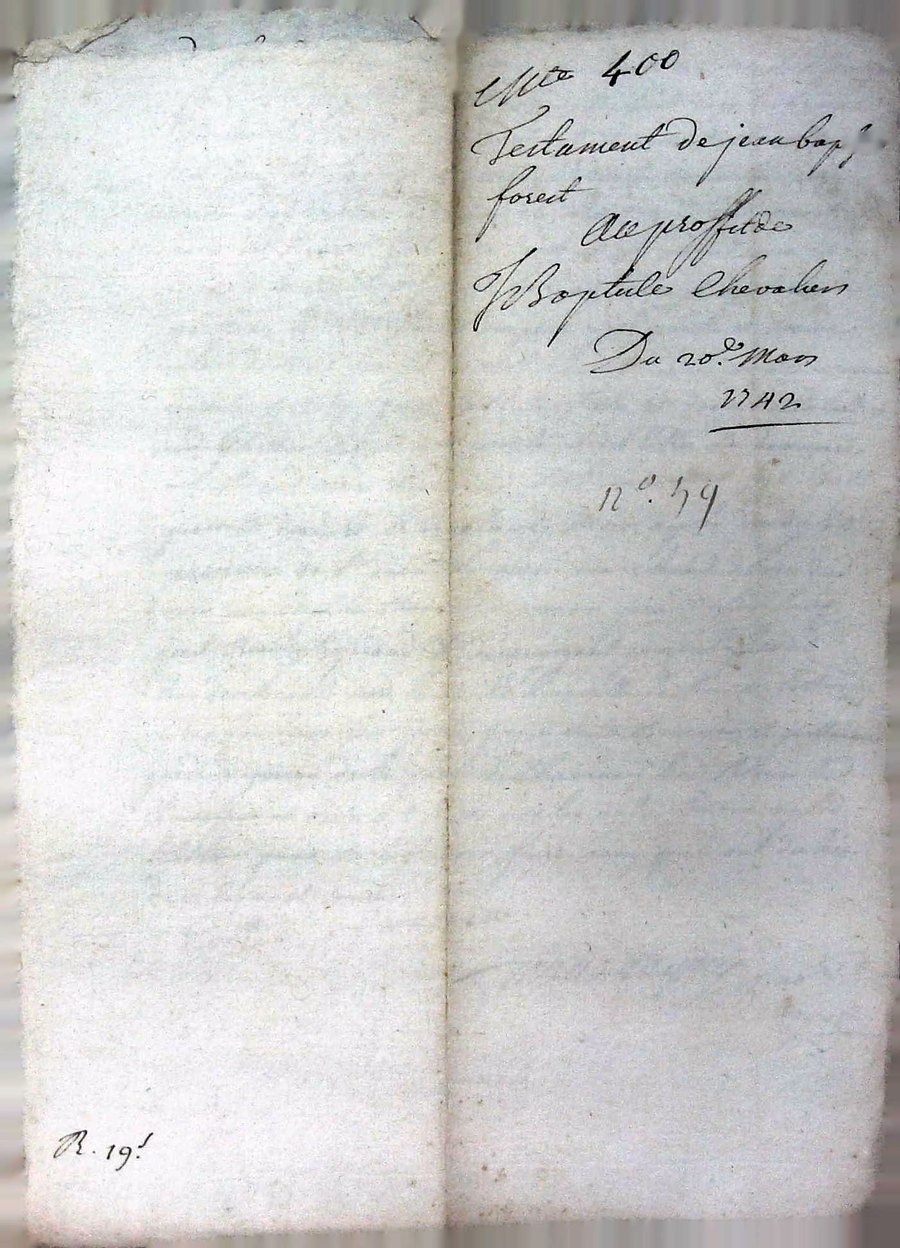 Cote 400
Testament de jean bap.t
forest
Au proffit de
J Baptiste Chevalier
Du 20.e Mars
1742
n.o 59
R. 19.t